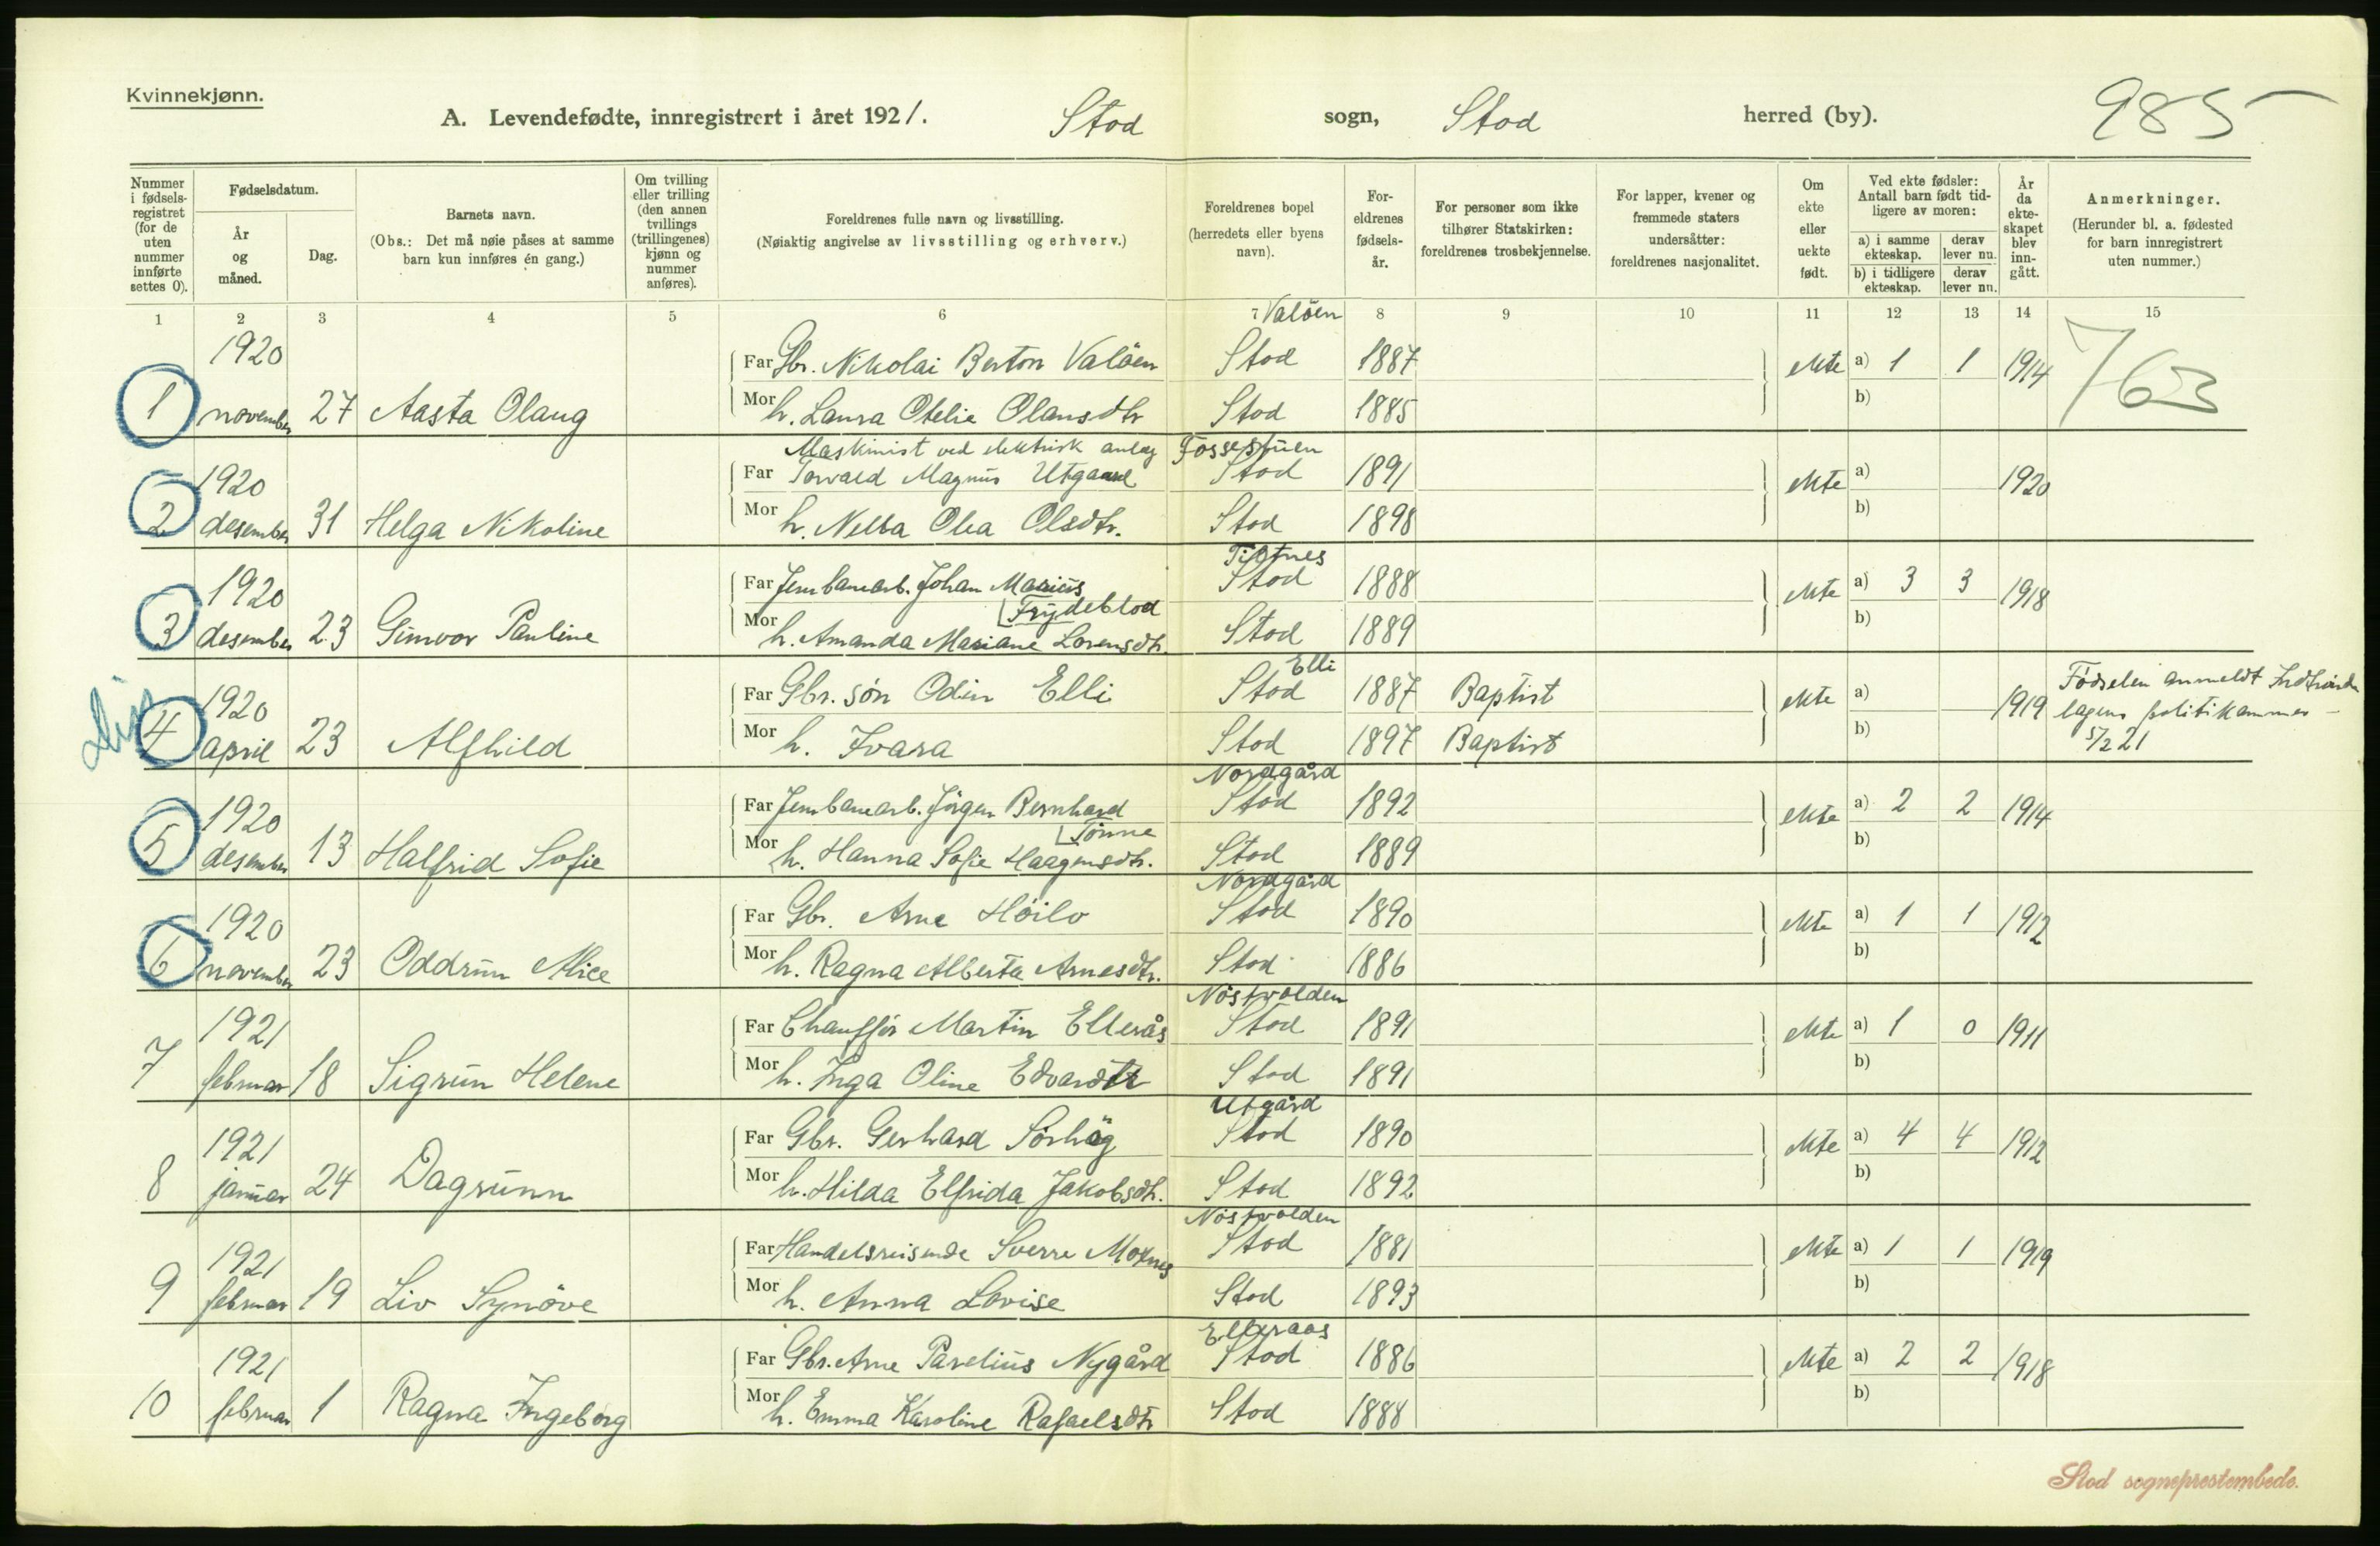 Kvinnekjønn.
A. Levendefødte, innregistrert i året 1921. Stod sogn, Stod herred (by). 985
Nummer i fødsels-registret (for de uten nummer innførte settes 0).
Fødselsdatum.
År og måned.
Dag.
Barnets navn.
(Obs.: Det må nøie påses at samme barn kun innføres én gang.)
Om tvilling eller trilling (den annen tvillings (trillingenes) kjønn og nummer anføres).
Foreldrenes fulle navn og livsstilling.
(Nøiaktig angivelse av livsstilling og erhverv.)
Foreldrenes bopel (herredets eller byens navn).
For-eldrenes fødsels-år.
For personer som ikke tilhører Statskirken: foreldrenes trosbekjennelse.
For lapper, kvener og fremmede staters undersåtter: foreldrenes nasjonalitet.
Om ekte eller uekte født.
Ved ekte fødsler: Antall barn født tid-ligere av moren:
a) i samme ekteskap. derav lever nu.
b) i tidligere ekteskap. derav lever nu.
År da ekte-skapet blev inn-gått.
Anmerkninger.
(Herunder bl. a. fødested for barn innregistrert uten nummer.)
1 2 3 4 5 6 7 8 9 10 11 12 13 14 15
Valöen
1920 Far Gbr. Nikolai Berton Valöen Stod 1887 ekte a) 1 1 1914 763
1 november 27 Aasta Olaug Mor h. Laura Otelie Olausdtr Stod 1885 b)
Maskinist ved elektrisk anleg Fossestuen
1920 Far Torvald Magnus Utgaard Stod 1891 ekte a) 1920
2 desember 31 Helga Nikoline Mor h. Nelba Olea Olsdtr. Stod 1898 b)
Tiltnes
1920 Far Jernbanearb. Johan Marius Stod 1888 ekte a) 3 3 1918
Frydeblod
3 desember 23 Gunvor Pauline Mor h. Amanda Mariane Lorensdtr. Stod 1889 b)
Elli
1920 Far Gbr. søn Odin Elli Stod 1887 Baptist ekte a) 1919 Fødselen anmeldt
lagens politikammer
4 april 23 Alfhild Mor h. Ivara Stod 1897 Baptist b) 5/2 21
Nordgård
1920 Far Jernbanearb. Jörgen Bernhard Stod 1892 ekte a) 2 2 1914
Tönne
5 desember 13 Halfrid Sofie Mor h. Hanna Sofie Haagensdtr. Stod 1889 b)
Nordgård
1920 Far Gbr. Arne Höilo Stod 1890 ekte a) 1 1 1912
6 november 23 Oddrun Alice Mor h. Ragna Alberta Arnesdtr. Stod 1886 b)
Nöstvolden
1921 Far Chaufför Martin Ellerås Stod 1891 ekte a) 1 0 1911
7 februar 18 Sigrun Helene Mor h. Inga Oline Edvardtr Stod 1891 b)
Utgård
1921 Far Gbr. Gerhard Sörhög Stod 1890 ekte a) 4 4 1912
8 januar 24 Dagrunn Mor h. Hilda Elfrida Jakobsdtr. Stod 1892 b)
Nöstvolden
1921 Far Handelsreisende Sverre Moxnes Stod 1881 ekte a) 1 1 1919
9 februar 19 Liv Synöve Mor h. Anna Lovise Stod 1893 b)
Elleraas
1921 Far Gbr. Arne Parelius Nygård Stod 1886 ekte a) 2 2 1918
10 februar 1 Ragna Ingeborg Mor h. Emma Karoline Rafaelsdtr Stod 1888 b)
Stod sogneprestembede.